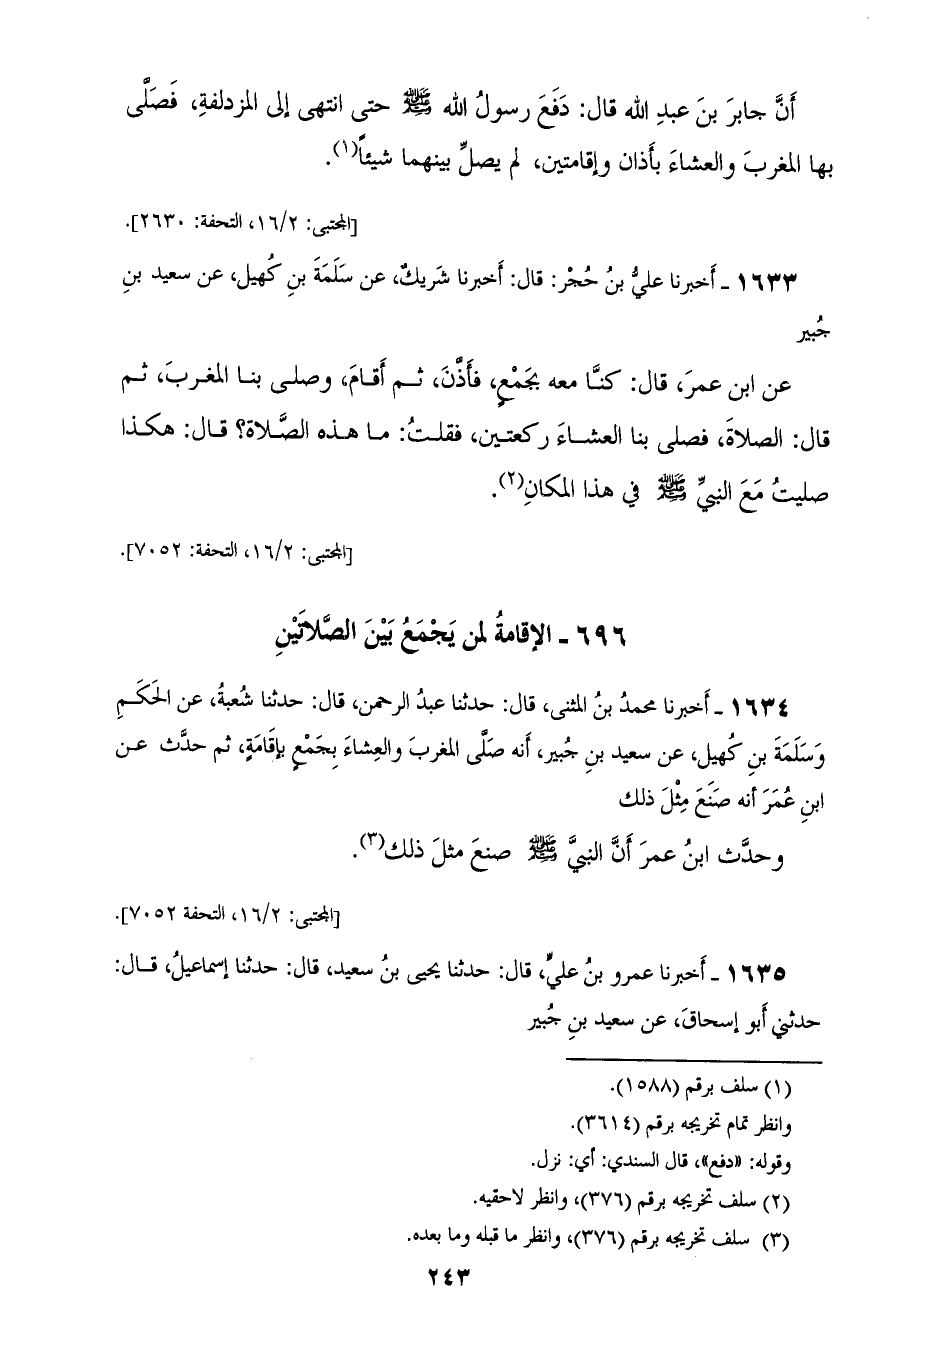 أَنَّ جابرَ بنَ عبدِ الله قال: دَفَعَ رسولُ الله ﷺ حتى انتهى إلى المزدلفةِ، فَصَلَّى
بها المغربَ والعشاءَ بأَذان وإقامتين، لم يصلِّ بينهما شيئاً(١).
[المجتبى: ١٦/٢، التحفة: ٢٦٣٠].
١٦٣٣ ـ أخبرنا عليُّ بنُ حُجْر: قال: أخبرنا شَريكٌ، عن سَلَمَةَ بنِ كُهيل، عن سعيد بنِ
جُبير
عن ابن عمرَ، قال: كنَّا معه بجَمْعٍ، فأَذَّنَ، ثم أَقامَ، وصلى بنا المغربَ، ثم
قال: الصلاةَ، فصلى بنا العشاءَ ركعتين، فقلتُ: ما هذه الصَّلاة؟ قال: هكذا
صليتُ مَعَ النبيِّ ﷺ في هذا المكانِ(٢).
[المجتبى: ١٦/٢، التحفة: ٧٠٥٢].
٦٩٦ ـ الإقامةُ لمن يَجْمَعُ بَيْنَ الصَّلاتَيْنِ
١٦٣٤ ـ أَخبرنا محمدُ بنُ المثنى، قال: حدثنا عبدُ الرحمن، قال: حدثنا شعبةُ، عن الحَكَمِ
وَسَلَمَةَ بنِ كُهيل، عن سعيد بنِ جُبير، أنه صَلَّى المغربَ والعِشاءَ بِجَمْعٍ بإقَامَةٍ، ثم حدَّث عن
ابنِ عُمَرَ أنه صَنَعَ مِثْلَ ذلك
وحدَّث ابنُ عمرَ أَنَّ النبيَّ ﷺ صنعَ مثلَ ذلك(٣).
[المجتبى: ١٦/٢، التحفة ٧٠٥٢].
١٦٣٥ ـ أَخبرنا عمرو بنُ عليٍّ، قال: حدثنا يحيى بنُ سعيد، قال: حدثنا إسماعيلُ، قال:
حدثني أَبو إسحاقَ، عن سعيد بنِ جُبير
(١) سلف برقم (١٥٨٨).
وانظر تمام تخريجه برقم (٣٦١٤).
وقوله: «دفع»، قال السندي: أي: نزل.
(٢) سلف تخريجه برقم (٣٧٦)، وانظر لاحقيه.
(٣) سلف تخريجه برقم (٣٧٦)، وانظر ما قبله وما بعده.
٢٤٣